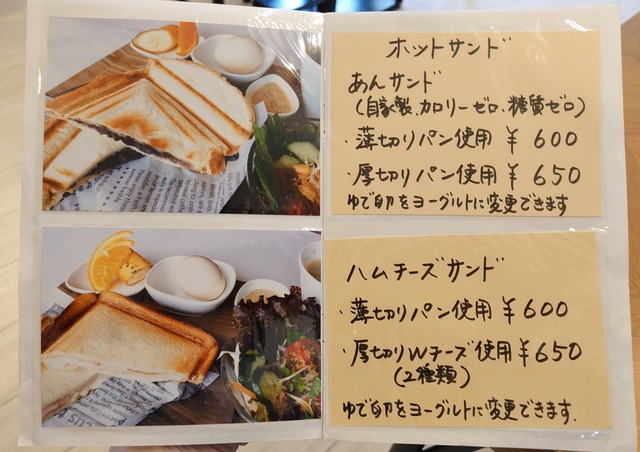 ホットサンド
あんサンド
(自家製、カロリーゼロ、糖質ゼロ)
・薄切りパン使用 ¥600
・厚切りパン使用 ¥650
ゆで卵をヨーグルトに変更できます
ハムチーズサンド
・薄切りパン使用 ¥600
・厚切りWチーズ使用 ¥650
(2種類)
ゆで卵をヨーグルトに変更できます.